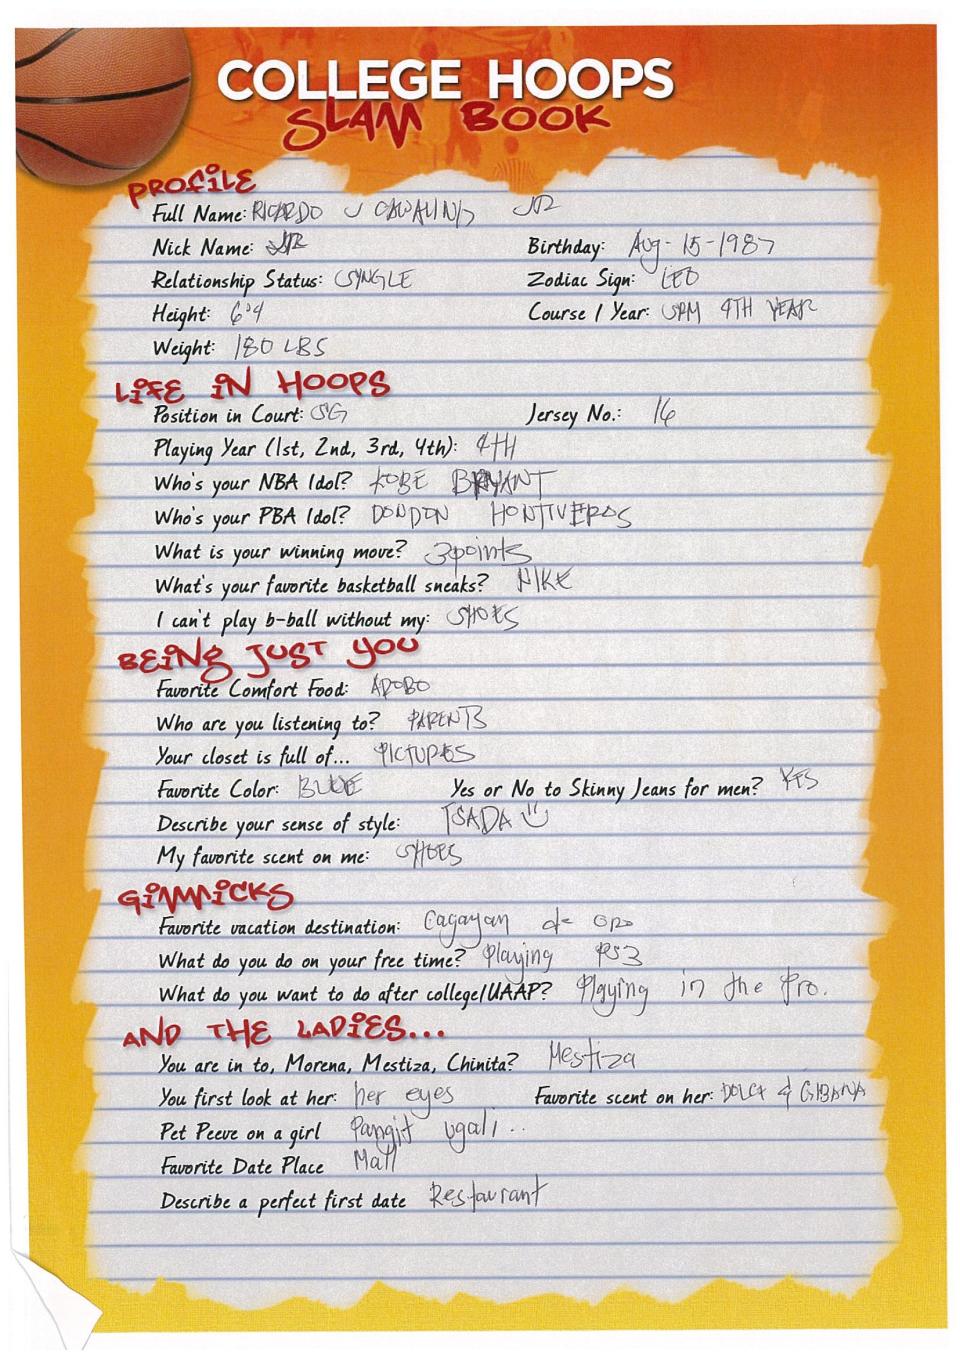 COLLEGE HOOPS
SLAM BOOK
PROFILE
Full Name: RICARDO JR
Nick Name: JR Birthday: Aug-15-1987
Relationship Status: SYNGLE Zodiac Sign: LEO
Height: 6'4 Course / Year: 4TH YEAR
Weight: 180 LBS
LIFE IN HOOPS
Position in Court: SG Jersey No.: 16
Playing Year (1st, 2nd, 3rd, 4th): 4TH
Who's your NBA Idol? KOBE BRYANT
Who's your PBA Idol? DONDON HONTIVEROS
What is your winning move? 3points
What's your favorite basketball sneaks? NIKE
I can't play b-ball without my: SHOES
BEING JUST YOU
Favorite Comfort Food: ADOBO
Who are you listening to? PARENTS
Your closet is full of... PICTURES
Favorite Color: BLUE Yes or No to Skinny Jeans for men? YES
Describe your sense of style: TSADA
My favorite scent on me: SHOES
GIMMICKS
Favorite vacation destination: Cagayan de oro
What do you do on your free time? Playing PS3
What do you want to do after college/UAAP? Playing in the Pro.
AND THE LADIES...
You are in to, Morena, Mestiza, Chinita? Mestiza
You first look at her: her eyes Favorite scent on her: DOLCE & GIBANA
Pet Peeve on a girl Pangit ugali ..
Favorite Date Place Mall
Describe a perfect first date Restaurant